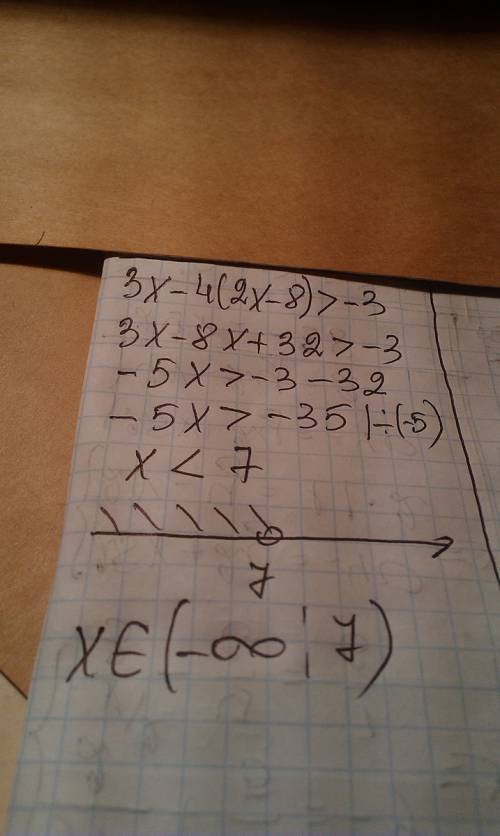 3x-4(2x-8)>-3
3x-8x+32>-3
-5x>-3-32
-5x>-35 |÷(-5)
x<7
7
x∈(-∞;7)